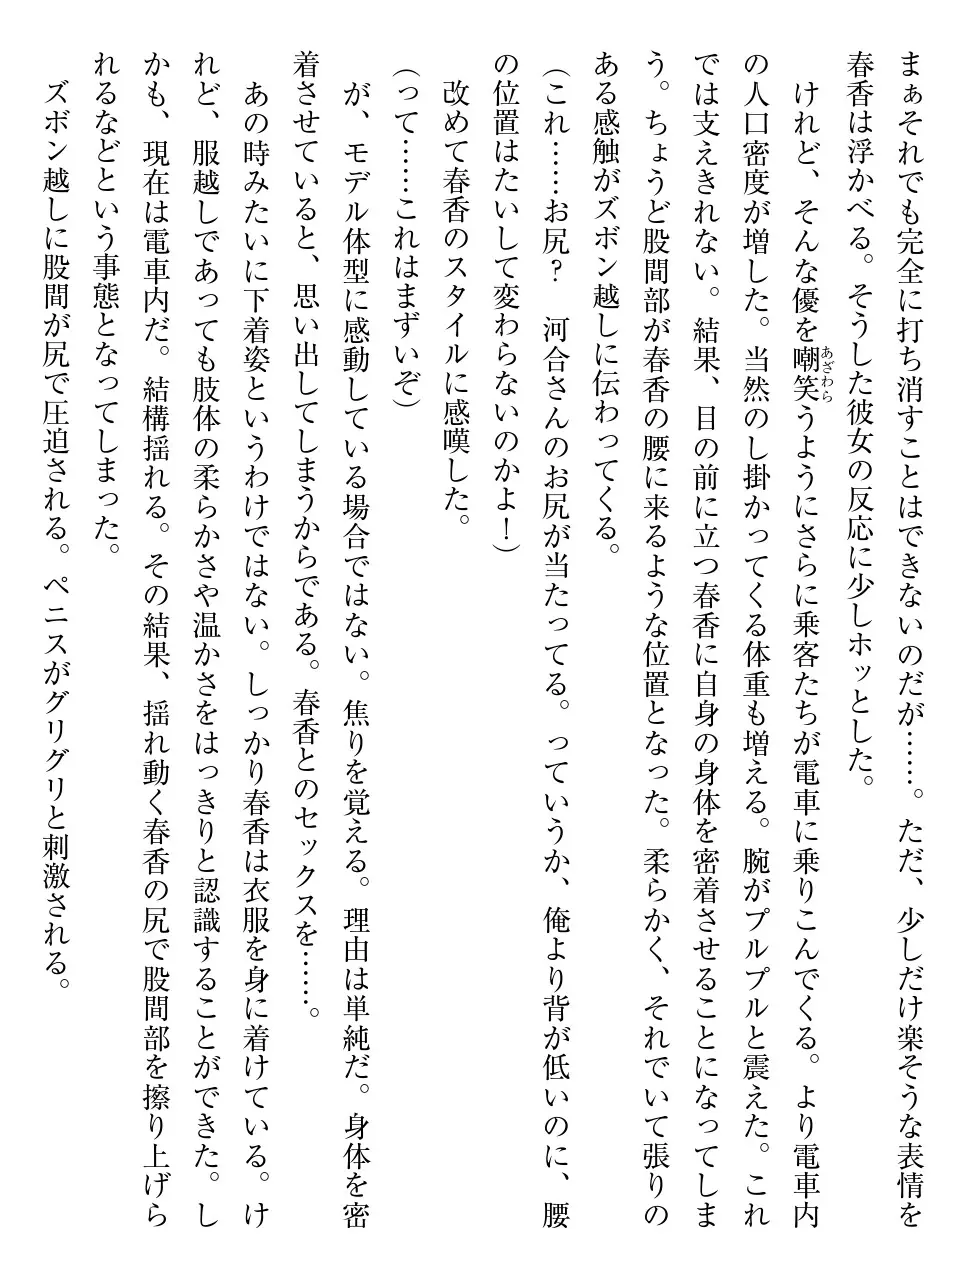 まぁそれでも完全に打ち消すことはできないのだが……。ただ、少しだけ楽そうな表情を
春香は浮かべる。そうした彼女の反応に少しホッとした。
けれど、そんな優を嘲笑うようにさらに乗客たちが電車に乗りこんでくる。より電車内
あざわら
の人口密度が増した。当然のし掛かってくる体重も増える。腕がプルプルと震えた。これ
では支えきれない。結果、目の前に立つ春香に自身の身体を密着させることになってしま
う。ちょうど股間部が春香の腰に来るような位置となった。柔らかく、それでいて張りの
ある感触がズボン越しに伝わってくる。
(これ……お尻?　河合さんのお尻が当たってる。っていうか、俺より背が低いのに、腰
の位置はたいして変わらないのかよ!)
改めて春香のスタイルに感嘆した。
(って……これはまずいぞ)
が、モデル体型に感動している場合ではない。焦りを覚える。理由は単純だ。身体を密
着させていると、思い出してしまうからである。春香とのセックスを……。
あの時みたいに下着姿というわけではない。しっかり春香は衣服を身に着けている。け
れど、服越しであっても肢体の柔らかさや温かさをはっきりと認識することができた。し
かも、現在は電車内だ。結構揺れる。その結果、揺れ動く春香の尻で股間部を擦り上げら
れるなどという事態となってしまった。
ズボン越しに股間が尻で圧迫される。ペニスがグリグリと刺激される。